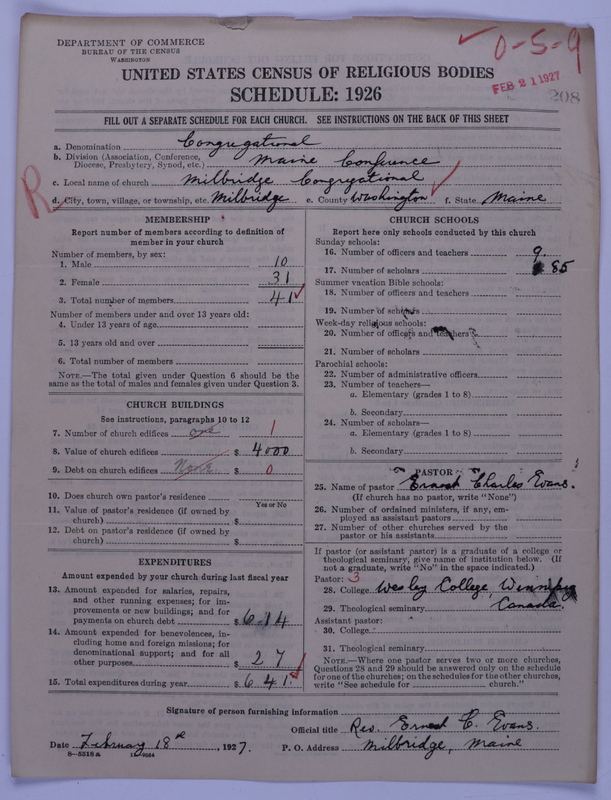 DEPARTMENT OF COMMERCE
BUREAU OF THE CENSUS
WASHINGTON
0-5-9
FEB 21 1927
208
UNITED STATES CENSUS OF RELIGIOUS BODIES
SCHEDULE: 1926
FILL OUT A SEPARATE SCHEDULE FOR EACH CHURCH. SEE INSTRUCTIONS ON THE BACK OF THIS SHEET
a. Denomination Congregational
b. Division (Association, Conference, Diocese, Presbytery, Synod, etc.) Maine Conference
c. Local name of church Milbridge Congregational
R
d. City, town, village, or township, etc. Milbridge e. County Washington f. State Maine
MEMBERSHIP
Report number of members according to definition of
member in your church
Number of members, by sex:
1. Male 10
2. Female 31
3. Total number of members 41
Number of members under and over 13 years old:
4. Under 13 years of age
5. 13 years old and over
6. Total number of members
NOTE.—The total given under Question 6 should be
same as the total of males and females given under Question 3.
CHURCH BUILDINGS
See instructions, paragraphs 10 to 12
7. Number of church edifices one 1
8. Value of church edifices $ 4000
9. Debt on church edifices None $ 0
10. Does church own pastor's residence
Yes or No
11. Value of pastor's residence (if owned by
church) $
12. Debt on pastor's residence (if owned by
church) $
EXPENDITURES
Amount expended by your church during last fiscal year
13. Amount expended for salaries, repairs,
and other running expenses; for im-
provements or new buildings; and for
payments on church debt $ 614
14. Amount expended for benevolences, in-
cluding home and foreign missions; for
denominational support; and for all
other purposes $ 27
15. Total expenditures during year $ 641.
CHURCH SCHOOLS
Report here only schools conducted by this church
Sunday schools:
16. Number of officers and teachers 9
17. Number of scholars 85
Summer vacation Bible schools:
18. Number of officers and teachers
19. Number of scholars
Week-day religious schools:
20. Number of officers and teachers
21. Number of scholars
Parochial schools:
22. Number of administrative officers
23. Number of teachers—
a. Elementary (grades 1 to 8)
b. Secondary
24. Number of scholars—
a. Elementary (grades 1 to 8)
b. Secondary
PASTOR
25. Name of pastor Ernest Charles Evans.
(If church has no pastor, write "None")
26. Number of ordained ministers, if any, em-
ployed as assistant pastors
27. Number of other churches served by the
pastor or his assistants
If pastor (or assistant pastor) is a graduate of a college or
theological seminary, give name of institution below. (If
not a graduate, write "No" in the space indicated.)
Pastor: 3
28. College Wesley College, Winnipeg
29. Theological seminary Canada.
Assistant pastor:
30. College
31. Theological seminary
NOTE.—Where one pastor serves two or more churches,
Questions 28 and 29 should be answered only on the schedule
for one of the churches; on the schedules for the other churches,
write "See schedule for church."
Signature of person furnishing information
Official title Rev. Ernest C. Evans.
Date February 18th, 1927. P. O. Address Milbridge, Maine
8—5318a